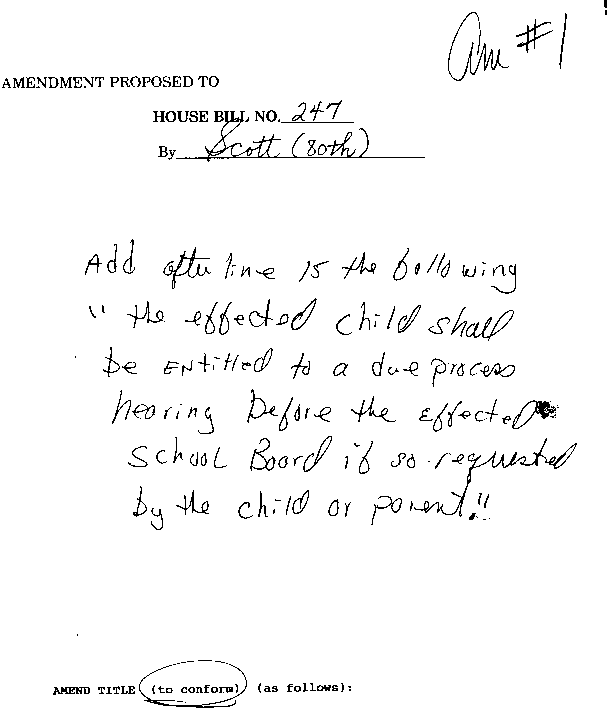 Am #1
AMENDMENT PROPOSED TO
HOUSE BILL NO. 247
By Scott (80th)
Add after line 15 the following
" the effected child shall
be entitled to a due process
hearing before the effected
School Board if so requested
by the child or parent."
AMEND TITLE (to conform) (as follows):